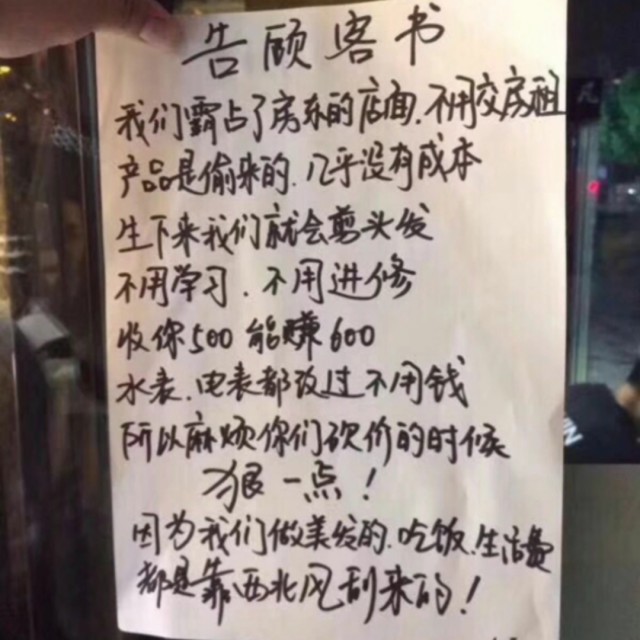 告顾客书
我们霸占了房东的店面.不用交房租
产品是偷来的.几乎没有成本
生下来我们就会剪头发
不用学习.不用进修
收你500能赚600
水表.电表都改过不用钱
所以麻烦你们砍价的时候
狠一点!
因为我们做美发的.吃饭.生活费
都是靠西北风刮来的!